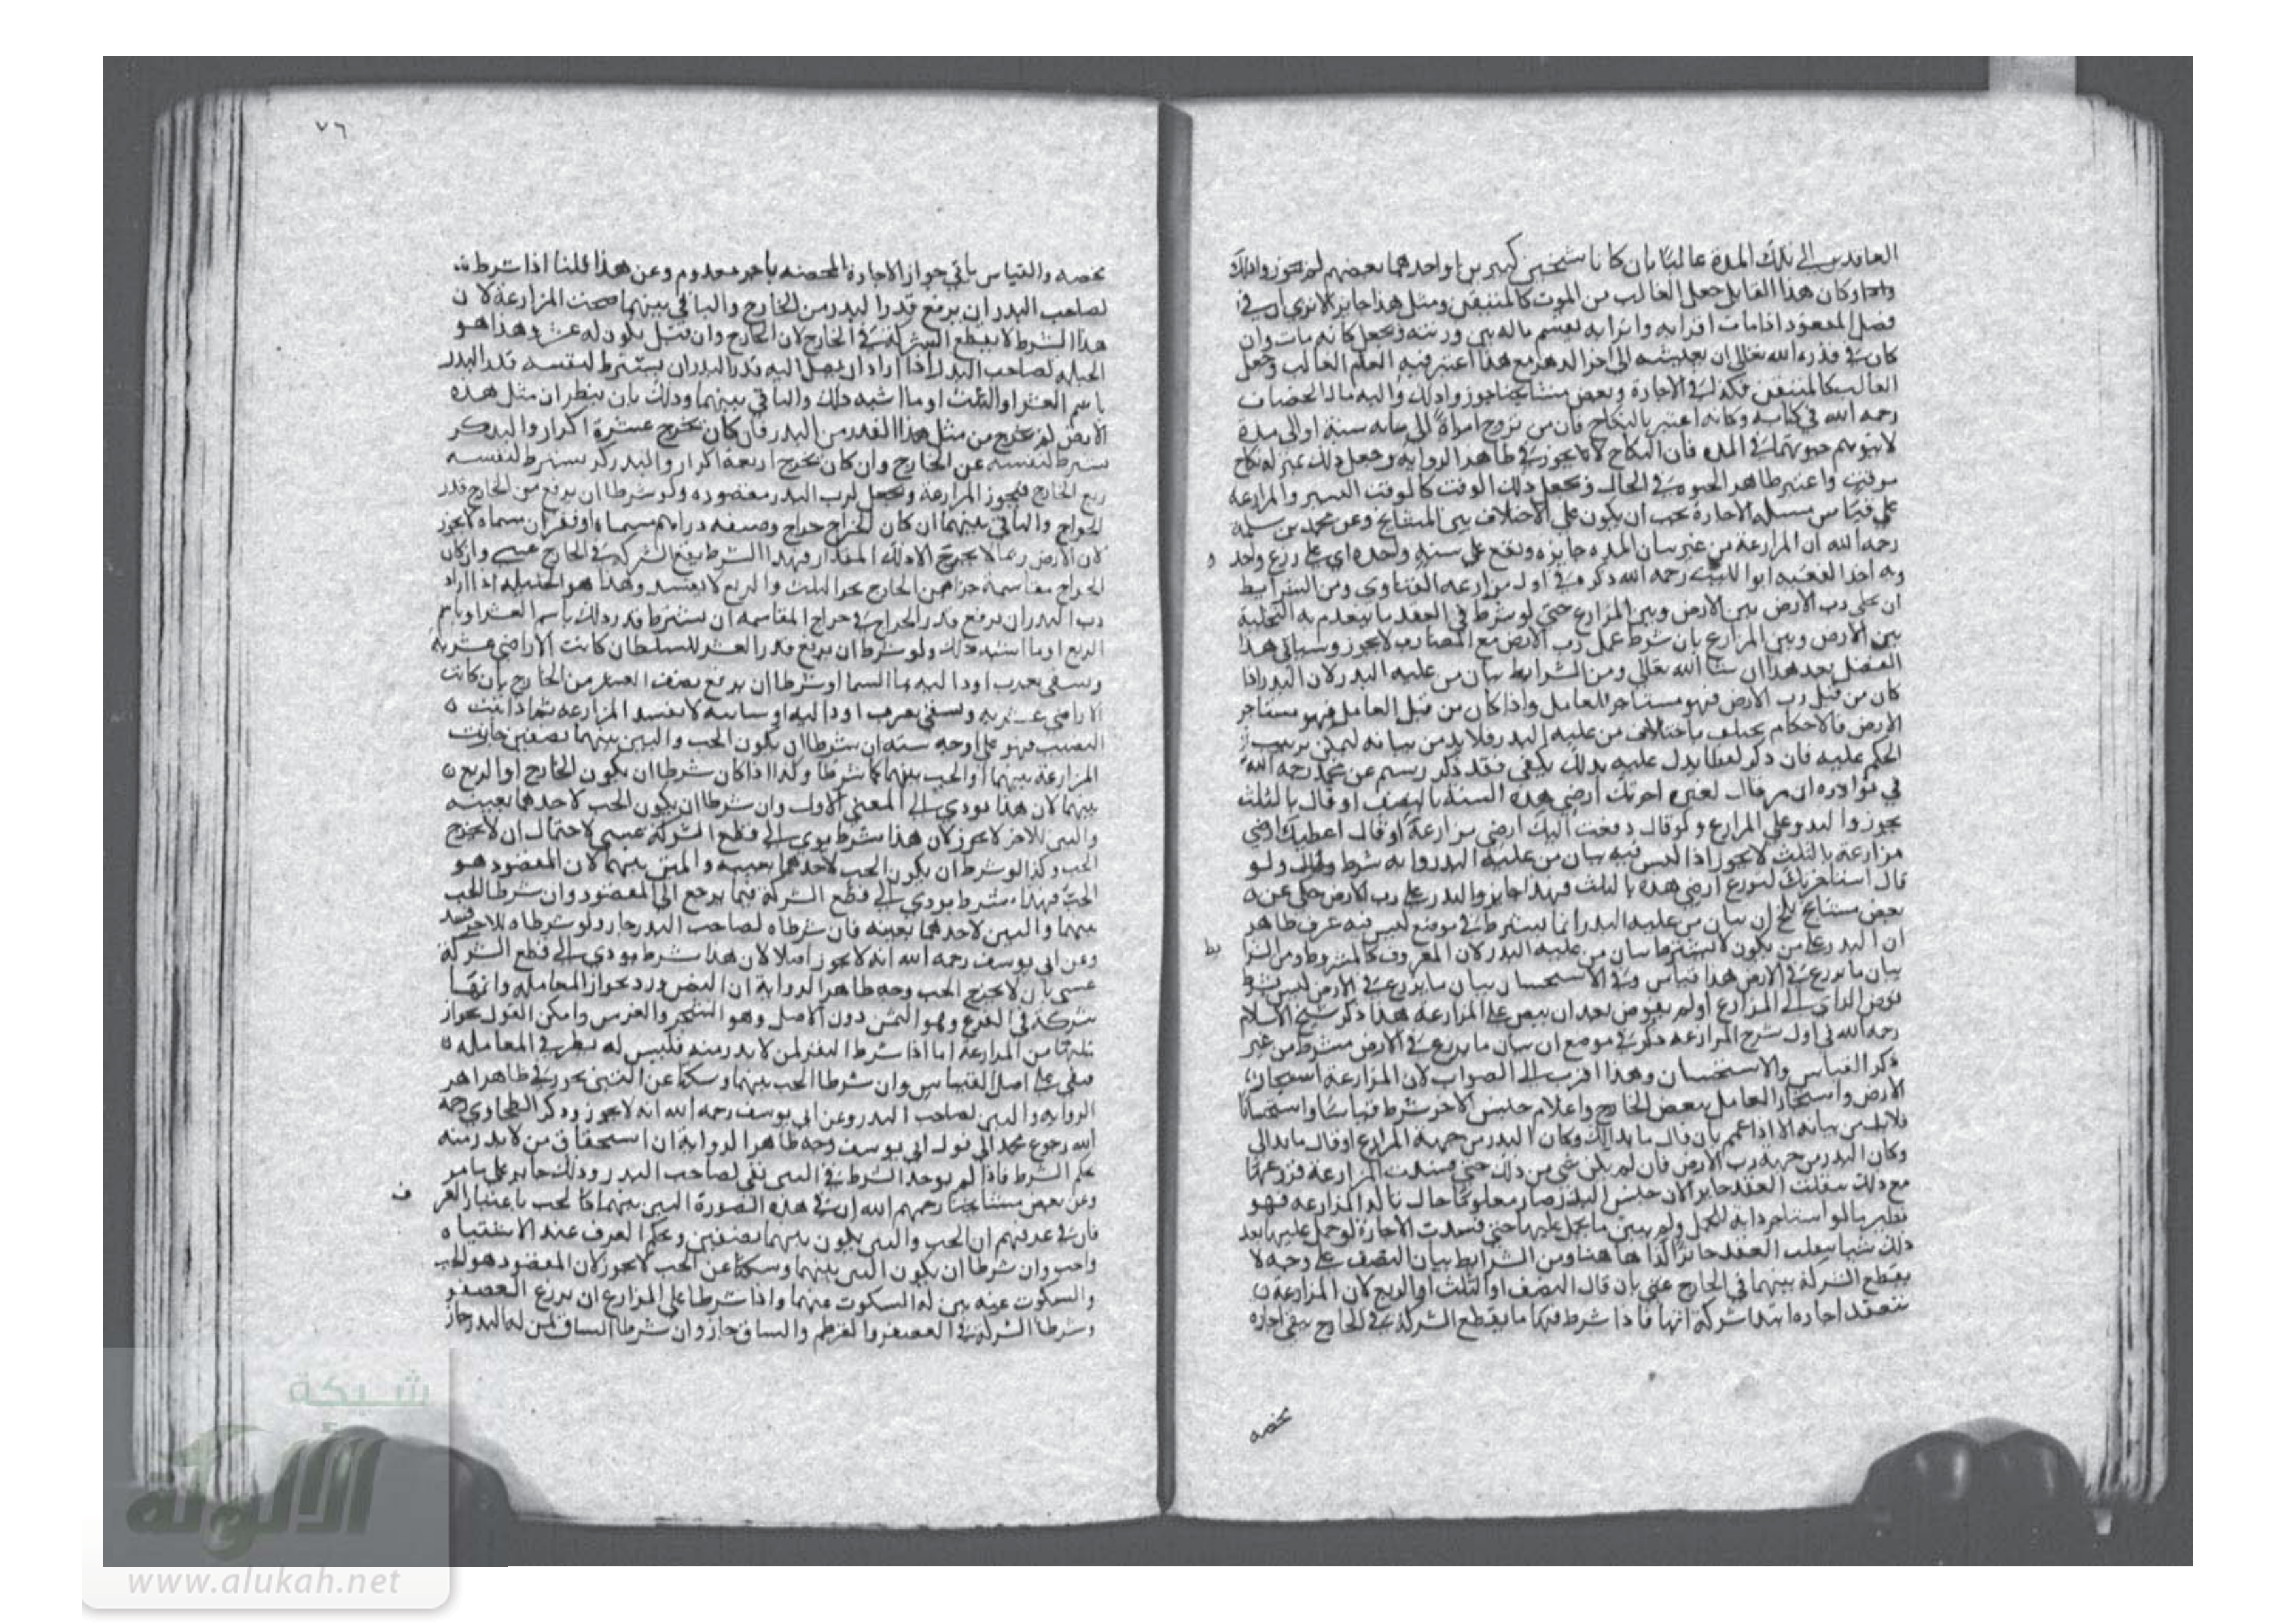 العاقدين الى تلك المدة غالبا بان كانا شيخين كبيرين او احدهما بعضهم لم يجوزوا ذلك
وكان هذا القايل جعل الغالب من الموت كالمتيقن ومثل هذا جايز الا ترى ان في
فصل المفقود اذا مات اقرانه واترابه يقسم ماله بين ورثته ويجعل كانه مات وان
كان في قدرة الله تعالى ان يعيشه الى اخر الدهر مع هذا اعتبر فيه العلم الغالب وجعل
الغالب كالمتيقن فكذلك في الاجارة وبعض مشايخنا جوزوا ذلك واليه مال الخصاف
رحمه الله في كتابه وكانه اعتبر بالنكاح فان من تزوج امراة الى مايه سنة او الى مدة
لا يتوهم حيوتهما في المدة فان النكاح لا يجوز في ظاهر الرواية وجعل ذلك بمنزلة نكاح
موقت واعتبر ظاهر الحيوة في الحال ويجعل ذلك الوقت كالوقت اليسير والمزارعة
على قياس مسيلة الاجارة يجب ان يكون على الاختلاف بين المشايخ وعن محمد بن سلمة
رحمه الله ان المزارعة من غير بيان المدة جايزة وتقع على سنة واحدة اي على زرع واحد
وبه اخذ الفقيه ابو الليث رحمه الله ذكره في اول مزارعة الفتاوى ومن الشرايط
ان يخلي رب الارض بين الارض وبين المزارع حتى لو شرط في العقد ما ينعدم به التخلية
بين الارض وبين المزارع بان شرط عمل رب الارض مع المضارب لا يجوز وسياتي هذا
الفصل بعد هذا ان شا الله تعالى ومن الشرايط بيان من عليه البدر لان البدر اذا
كان من قبل رب الارض فهو مستاجر للعامل واذا كان من قبل العامل فهو مستاجر
الارض فالاحكام يختلف باختلاف من عليه البدر فلا بد من بيانه ليمكن ترتيب
الحكم عليه فان ذكر لفظا يدل عليه بذلك يكفي فقد ذكر ابن رستم عن محمد رحمه الله
في نوادره ان من قال لغيره اجرتك ارضي هذه السنة بالنصف او قال بالثلث
يجوز والبدر على المزارع ولو قال دفعت اليك ارضي مزارعة او قال اعطيتك ارضي
مزارعة بالثلث لا يجوز اذا ليس فيه بيان من عليه البدر وانه شرط ولو
قال استاجرتك لتزرع ارضي هذه بالثلث فهذا جايز والبدر على رب الارض حكى عن
بعض مشايخ بلخ ان بيان من عليه البدر انما يشترط في موضع ليس فيه عرف ظاهر
ان البدر على من يكون لا يشترط بيان من عليه البدر لان المعروف كالمشروط ومن الشرا
يط
بيان ما يزرع في الارض هذا قياس وفي الاستحسان بيان ما يزرع في الارض ليس بشرط
فوض الراي الى المزارع او لم يفوض بعد ان ينص على المزارعة هكذا ذكر شيخ الاسلام
رحمه الله في اول شرح المزارعة ذكر في موضع ان بيان ما يزرع في الارض مشترط من غير
ذكر القياس والاستحسان وهذا اقرب الى الصواب لان المزارعة استيجار
الارض واستيجار العامل ببعض الخارج واعلام جنس الاجر شرط قياسا واستحسانا
فلا بد من بيانه الا اذا عمم بان قال ما بدا لك وكان البدر من جهة المزارع او قال ما بدا لي
وكان البدر من جهة رب الارض فان لم يكن شي من ذلك حتى فسدت المزارعة فزرعها
مع ذلك ينقلب العقد جايزا لان جنس البدر صار معلوما حال تاكد المزارعة فهو
نظير ما لو استاجر دابة للحمل ولم يبين ما يحمل عليها حتى فسدت الاجارة لو حمل عليها بعد
ذلك شيا ينقلب العقد جايزا كذا هاهنا ومن الشرايط بيان النصف على وجه لا
يقطع الشركة بينهما في الخارج عنى بان قال النصف او الثلث او الربع لان المزارعة
تنعقد اجارة ابتدا شركة انتها فاذا شرط فيها ما يقطع الشركة في الخارج يبقى اجارة
محضه
٧٦
محضه والقياس يابى جواز الاجارة المحضه باجر معدوم وعن هذا قلنا اذا شرط
لصاحب البدر ان يرفع قدر البدر من الخارج والباقي بينهما صحت المزارعة لان
هذا الشرط لا يقطع الشركة في الخارج لان الخارج وان قل يكون له عشر وهذا هو
الحيلة لصاحب البدر اذا اراد ان يصل اليه قدر البدر ان يشترط لنفسه قدر البدر
باسم العشر او الثلث او ما اشبه ذلك والباقي بينهما وذلك بان ينظر ان مثل هذه
الارض لم يخرج من مثل هذا القدر من البدر فان كان يخرج عشرة اكرار والبدر كر
يشترط لنفسه عشر الخارج وان كان يخرج اربعة اكرار والبدر كر يشترط لنفسه
ربع الخارج فيجوز المزارعة ويحصل لرب البدر مقصوده ولو شرطا ان يرفع من الخارج قدر
الخراج والباقي بينهما ان كان الخراج خراج وضيفه دراهم مسماة او قفزان مسماة لا يجوز
لان الارض ربما لا يخرج الا ذلك المقدار فهذا الشرط يقطع الشركة في الخارج عسى وان كان
الخراج مقاسمة جزا من الخارج نحو الثلث والربع لا يفسد وهذا هو الحيلة اذا اراد
رب البدر ان يرفع قدر الخراج في خراج المقاسمه ان يشترط قدر ذلك باسم العشر او باسم
الربع او ما اشبه ذلك ولو شرط ان يرفع قدر العشر للسلطان كانت الاراضي عشرية
ويسقى بغرب او دالية ما السما او شرطا ان يرفع نصف العشر من الخارج بان كانت
الاراضي عشرية ويسقى بغرب او دالية او سانية لا يفسد المزارعة
فهو على اوجه ستة ان شرطا ان يكون الحب والتبن بينهما نصفين جازت
المزارعة بينهما والحب بينهما كما شرطا وكذا اذا كان شرطا ان يكون الخارج او الربع
بينهما لان هذا يودي الى المعنى الاول وان شرطا ان يكون الحب لاحدهما بعينه
والتبن للاخر لا يجوز لان هذا شرط يودي الى قطع الشركة عسى لاحتمال ان لا يخرج
الحب وكذا لو شرط ان يكون الحب لاحدهما بعينه والتبن بينهما لان المقصود هو
الحب فهذا شرط يودي الى قطع الشركة فيما يرجع الى المقصود وان شرطا الحب
بينهما والتبن لاحدهما بعينه فان شرطاه لصاحب البدر جاز ولو شرطاه للاخر فسد
وعن ابي يوسف رحمه الله انه لا يجوز اصلا لان هذا شرط يودي الى قطع الشركة
عسى بان لا يخرج الحب وجه ظاهر الرواية ان النص ورد بجواز المعاملة وانها
شركة في الفرع وهو الثمر دون الاصل وهو الشجر والغرس وامكن القول بجواز
مثلها من المزارعة اما اذا شرط التبن لمن لا بدر منه فليس له نظير في المعاملة
فبقي على اصل القياس وان شرطا الحب بينهما وسكتا عن التبن يجوز في ظاهر
الرواية والتبن لصاحب البدر وعن ابي يوسف رحمه الله انه لا يجوز وذكر الطحاوي رحمه
الله رجوع محمد الى قول ابي يوسف وجه ظاهر الرواية ان استحقاق من لا بدر منه
بحكم الشرط فاذا لم يوجد الشرط في التبن بقي لصاحب البدر وذلك جايز على ما مر
وعن بعض مشايخنا رحمهم الله ان في هذه الصورة التبن بينهما كالحب باعتبار العر
ف
فان في عرفهم ان الحب والتبن يكون بينهما نصفين وحكم العرف عند الاشتباه
واجب وان شرطا ان يكون التبن بينهما وسكتا عن الحب لا يجوز لان المقصود هو الحب
والسكوت عنه بمنزلة السكوت عنهما واذا شرطا على المزارع ان يزرع العصفر
وشرطا الشركة في العصفر والقرطم والساق جاز وان شرطا الساق لمن له البدر جاز
شبكة
الألوكة
www.alukah.net